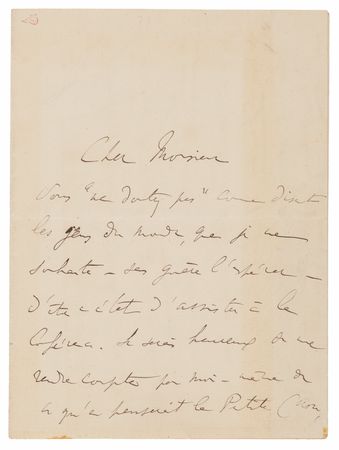 Cher Monsieur
Vous "ne doutez pas" comme disent
les gens du monde, que je ne
souhaite - sans guère l'espérer -
d'être en état d'assister à la
Conférence. Je serais heureux de me
rendre compte par moi-même de
ce qu'en penserait le Petite